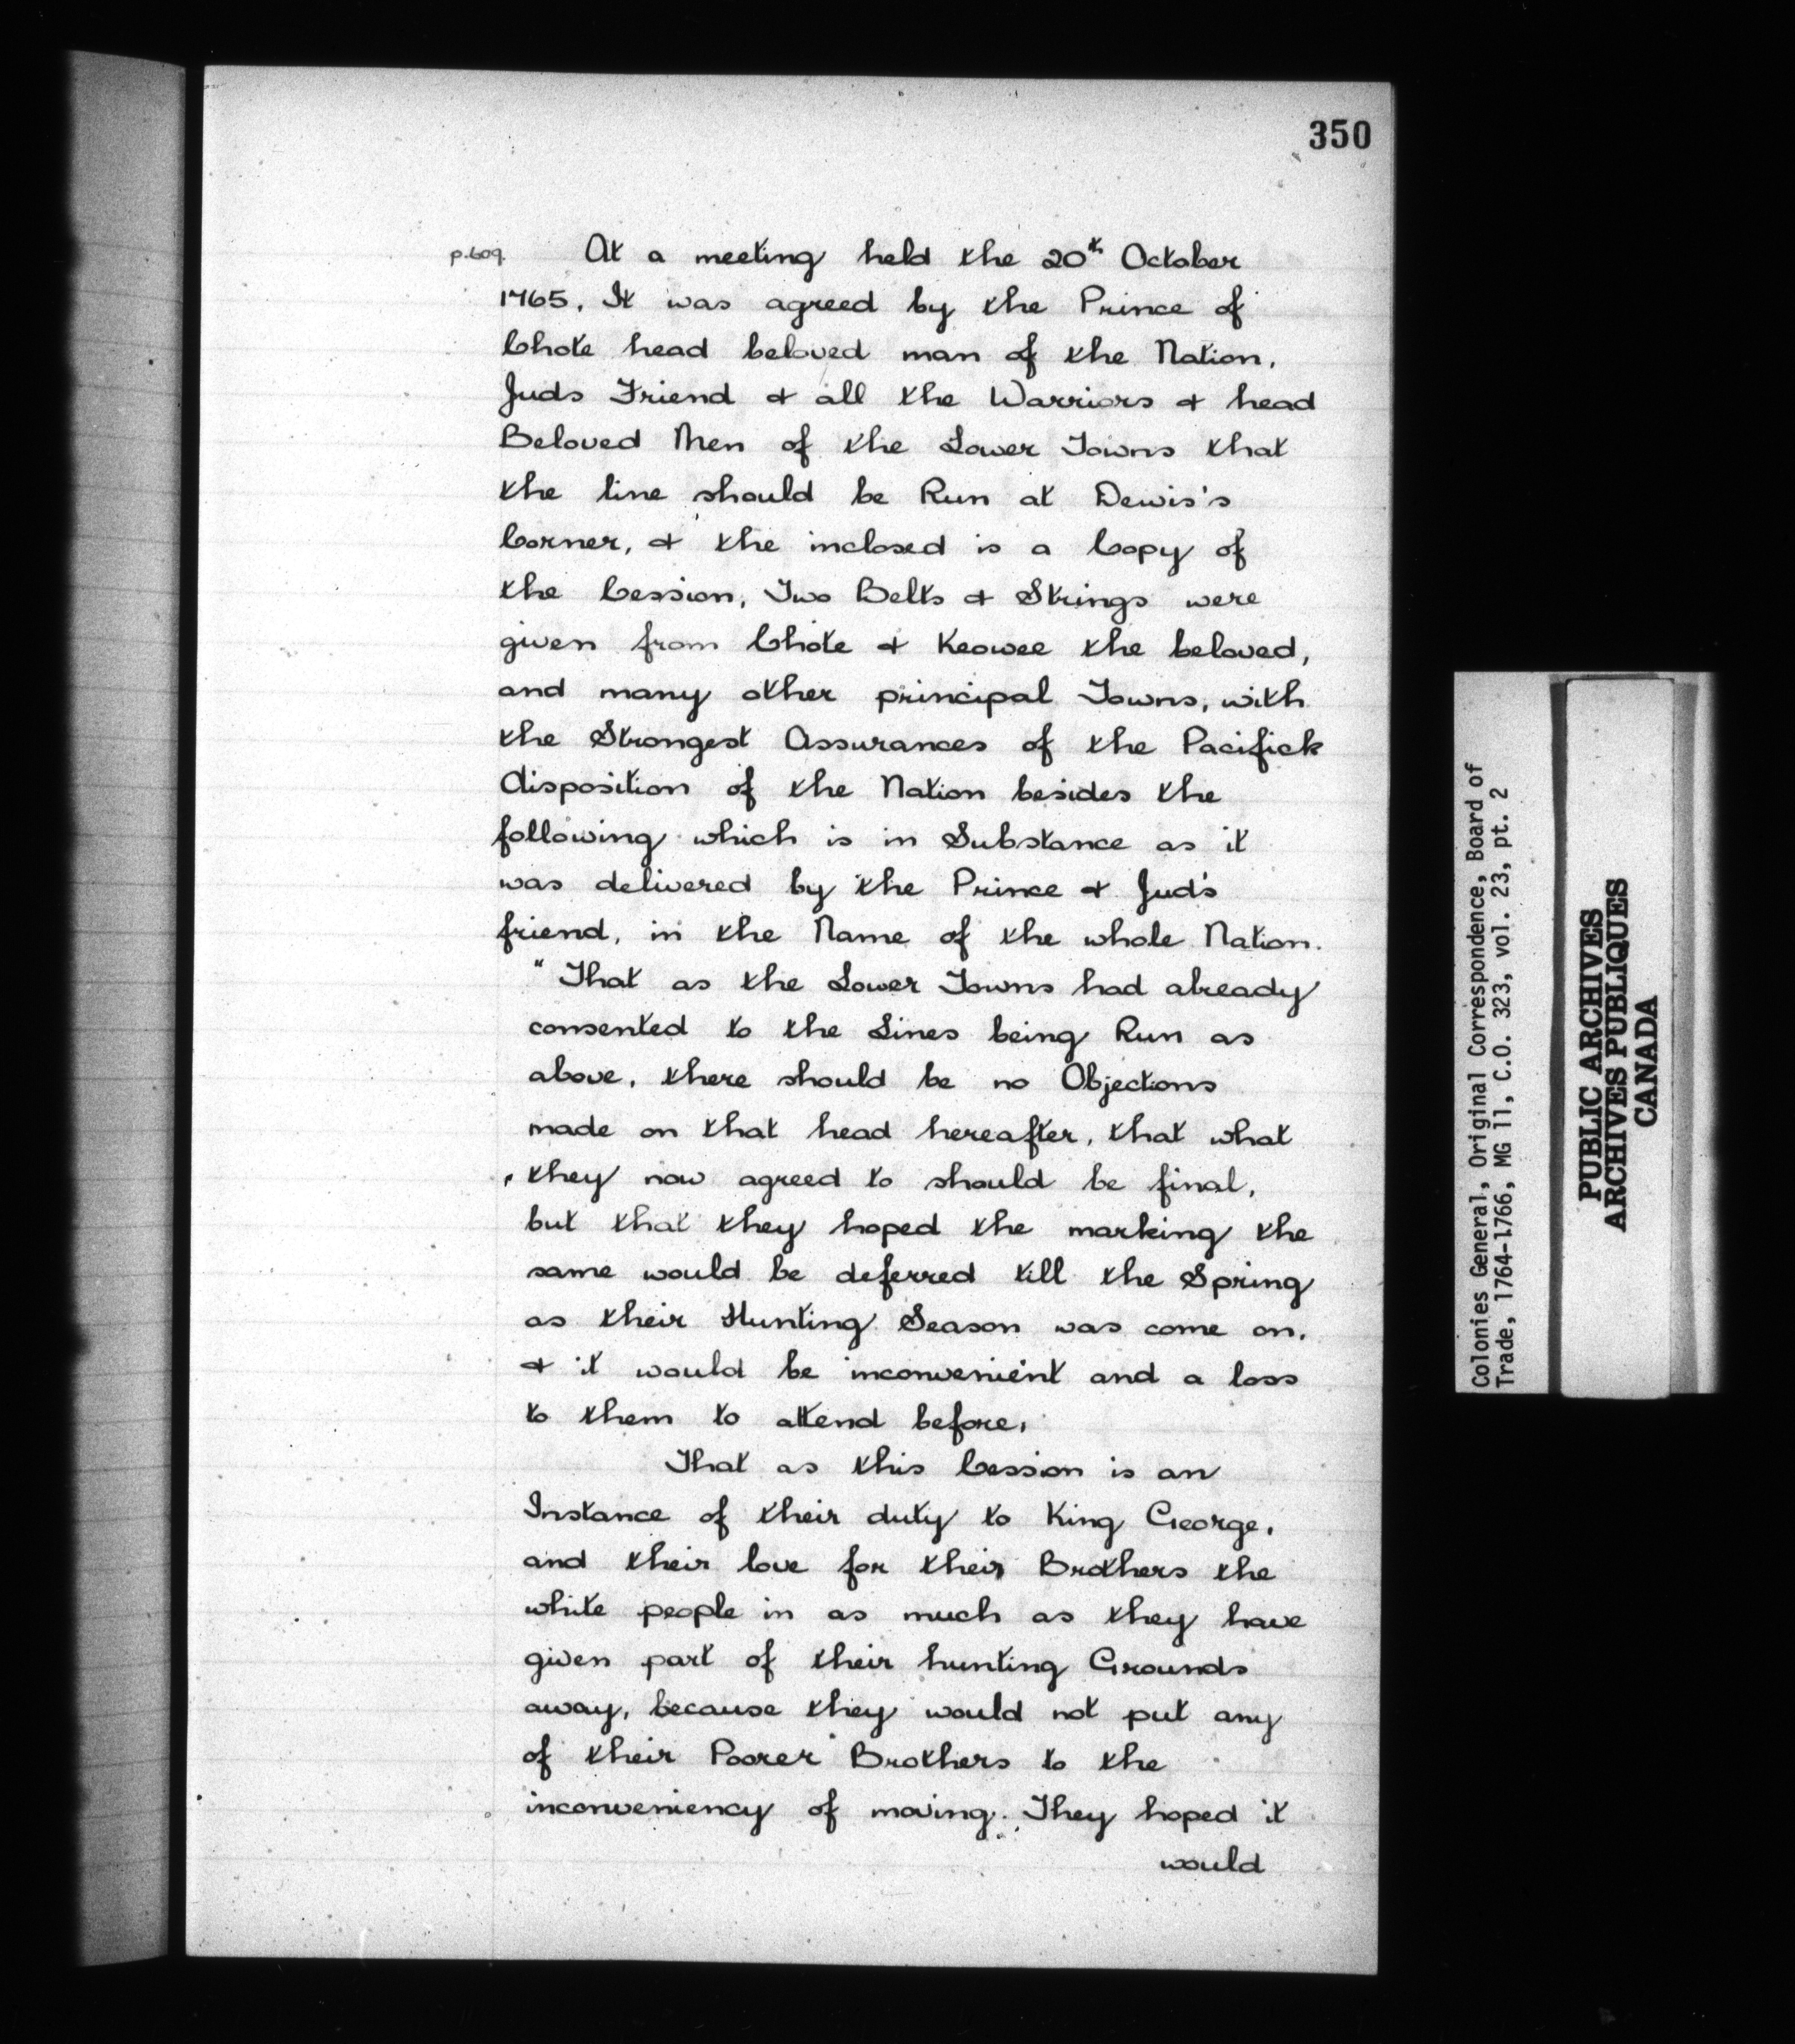 350
p.609. At a meeting held the 20th October
1765. It was agreed by the Prince of
Chote head beloved man of the Nation,
Juds Friend & all the Warriors & head
Beloved Men of the Lower Towns that
the line should be Run at Dewis's
Corner, & the inclosed is a Copy of
the Cession, Two Belts & Strings were
given from Chote & Keowee the beloved,
and many other principal Towns, with
the Strongest Assurances of the Pacifick
disposition of the Nation besides the
following which is in Substance as it
was delivered by the Prince & Jud's
friend, in the Name of the whole Nation.
"That as the Lower Towns had already
consented to the Lines being Run as
above, there should be no Objections
made on that head hereafter, that what
they now agreed to should be final,
but that they hoped the marking the
same would be deferred till the Spring
as their Hunting Season was come on,
& it would be inconvenient and a loss
to them to attend before,
That as this Cession is an
Instance of their duty to King George,
and their love for their Brothers the
white people in as much as they have
given part of their hunting Grounds
away, because they would not put any
of their Poorer Brothers to the
inconveniency of moving. They hoped it
would
Colonies General, Original Correspondence, Board of
Trade, 1764-1766, MG 11, C.O. 323, vol. 23, pt. 2
PUBLIC ARCHIVES
ARCHIVES PUBLIQUES
CANADA